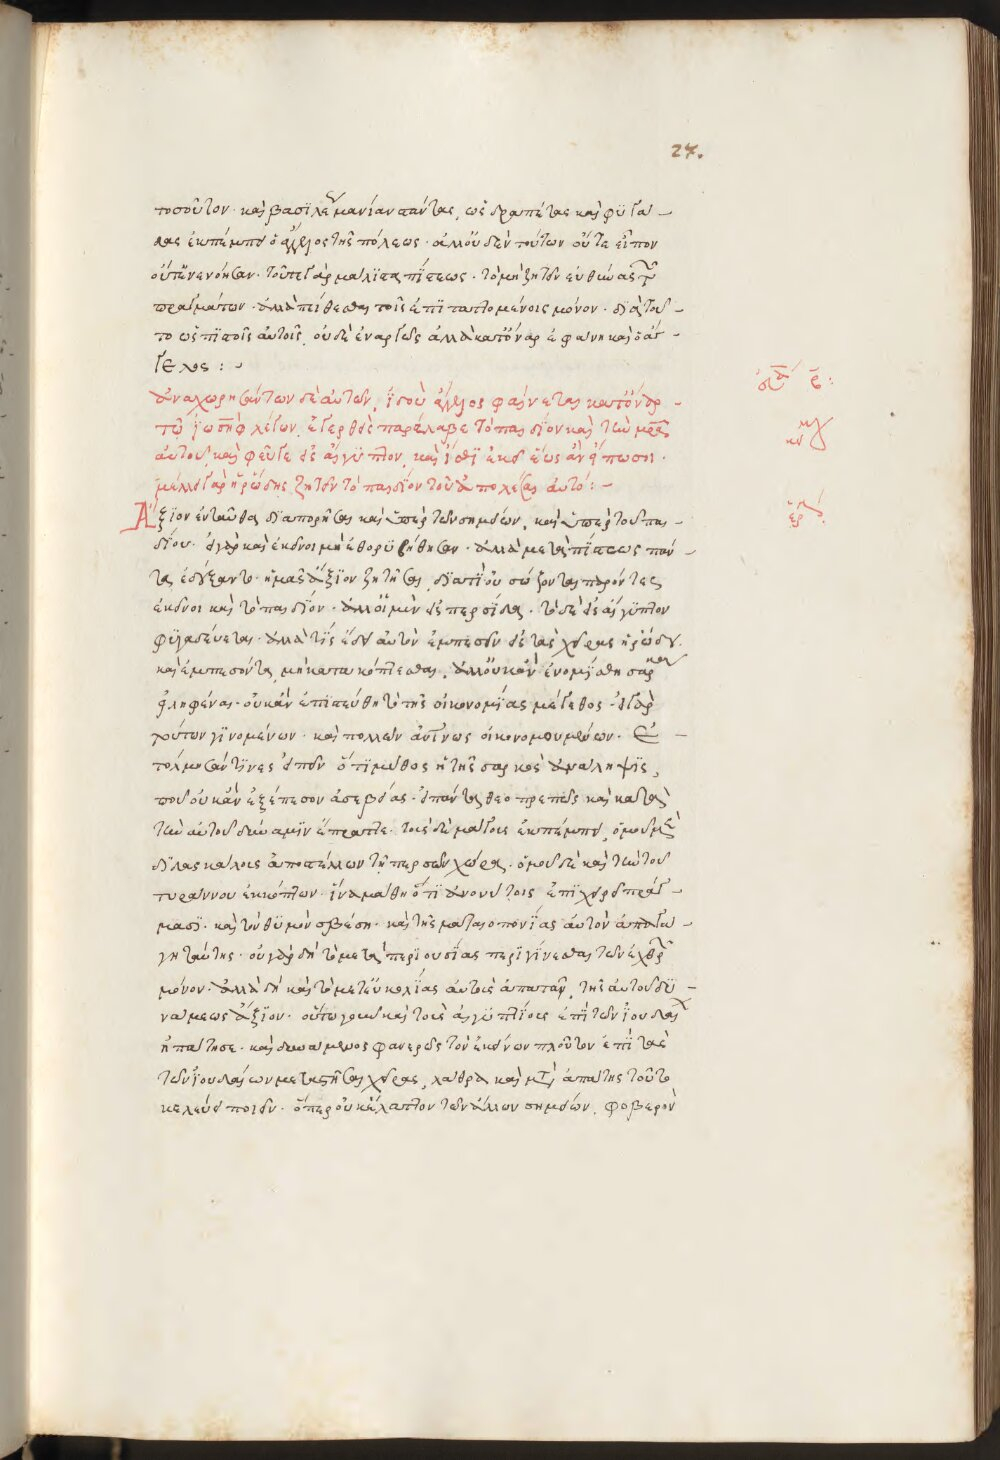 27.
τοσοῦτον· καὶ βασιλέως μανίαν πάντας, ὡς δραπέτας καὶ φυγά-
δας ἐκπέμπει ὁ ἄγγελος τῆς πόλεως· ἀλλ' οὐδὲν τούτων οὔτε εἶπον
οὔτ' ἐνενόησαν· τοῦτο γὰρ μάλιστα πίστεως· τὸ μὴ ζητεῖν εὐθύνας τῶν
πραγμάτων· ἀλλὰ πείθεσθαι τοῖς ἐπιταττομένοις μόνον· διὰ τοῦ-
το ὡς πιστοῖς αὐτοῖς, οὐδὲ ἐναργῶς ἀλλὰ κατ' ὄναρ ἐφάνη καὶ ὁ ἄγ-
γελος :-
ἀναχωρησάντων δὲ αὐτῶν, ἰδοὺ ἄγγελος φαίνεται κατ' ὄναρ -
τῷ ἰωσὴφ λέγων, ἐγερθεὶς παράλαβε τὸ παιδίον καὶ τὴν μρα
αὐτοῦ, καὶ φεῦγε εἰς αἴγυπτον, καὶ ἴσθι ἐκεῖ ἕως ἂν εἴπω σοι·
μέλλει γὰρ ἡρώδης ζητεῖν τὸ παιδίον τοῦ ἀπολέσαι αὐτό :-
Ἄξιον ἐνταῦθα διαπορῆσαι καὶ ὑπὲρ τῶν σημείων, καὶ ὑπὲρ τοῦ παι-
δίου· εἰ γὰρ καὶ ἐκεῖνοι μὴ ἐθορυβήθησαν· ἀλλὰ μετὰ πίστεως πάν-
τα ἐδέξαντο· ἡμᾶς ἄξιον ζητῆσαι, διατί οὐ σώζονται παρόντες
ἐκεῖνοι καὶ τὸ παιδίον· ἀλλ' οἱ μὲν εἰς περσίδα· τὸ δὲ εἰς αἴγυπτον
φυγαδεύεται· ἀλλὰ τί; ἔδει αὐτὸν ἐμπεσεῖν εἰς τὰς χεῖρας ἡρώδου.
καὶ ἐμπεσόντα, μὴ κατακόπτεσθαι, ἀλλ' οὐκ ἂν ἐνομίσθη σάρκα
εἰληφέναι· οὐκ ἂν ἐπιστεύθη τὸ τῆς οἰκονομίας μέγεθος· εἰ γὰρ
τούτων γινομένων· καὶ πολλῶν ἀνθρωπίνως οἰκονομουμένων· ἐ-
τόλμησάν τινες εἰπεῖν ὅτι μῦθος ἡ τῆς σαρκὸς ἀνάληψις,
ποῦ οὐκ ἂν ἐξέπεσον ἀσεβείας· εἰ πάντα θεοπρεπῶς καὶ κατὰ
τὴν αὐτοῦ δύναμιν ἔπραττε· τοὺς δὲ μάγους ἐκπέμπει, ὁμοῦ μὲν
διδασκάλους ἀποστέλλων τῇ περσῶν χώρᾳ· ὁμοῦ δὲ καὶ τὴν τοῦ
τυράννου ἐκκόπτων· ἵνα μάθῃ ὅτι ἀνονήτοις ἐπιχειρεῖ πράγ-
μασι· καὶ τὸν θυμὸν σβέσῃ· καὶ τῆς ματαιοπονίας αὐτὸν ἀπαγά-
γῃ ταύτης· οὐ γὰρ δὴ τὸ μετὰ περιουσίας περιγίνεσθαι τῶν ἐχθρῶν
μόνον· ἀλλὰ δὴ καὶ τὸ μετ' εὐκολίας αὐτοὺς ἀπατᾶν, τῆς αὐτοῦ δυ-
νάμεως ἄξιον· οὕτω γοῦν καὶ τοὺς αἰγυπτίους ἐπὶ τῶν ἰουδαίων
ἠπάτησε· καὶ δυνάμενος φανερῶς τὸν ἐκείνων πλοῦτον ἐπὶ τὰς
τῶν ἰουδαίων μεταστῆσαι χεῖρας, λάθρα καὶ μετ' ἀπάτης τοῦτο
κελεύει ποιεῖν· ὅπερ οὐκ ἔλαττον τῶν ἄλλων σημείων, φοβερὸν